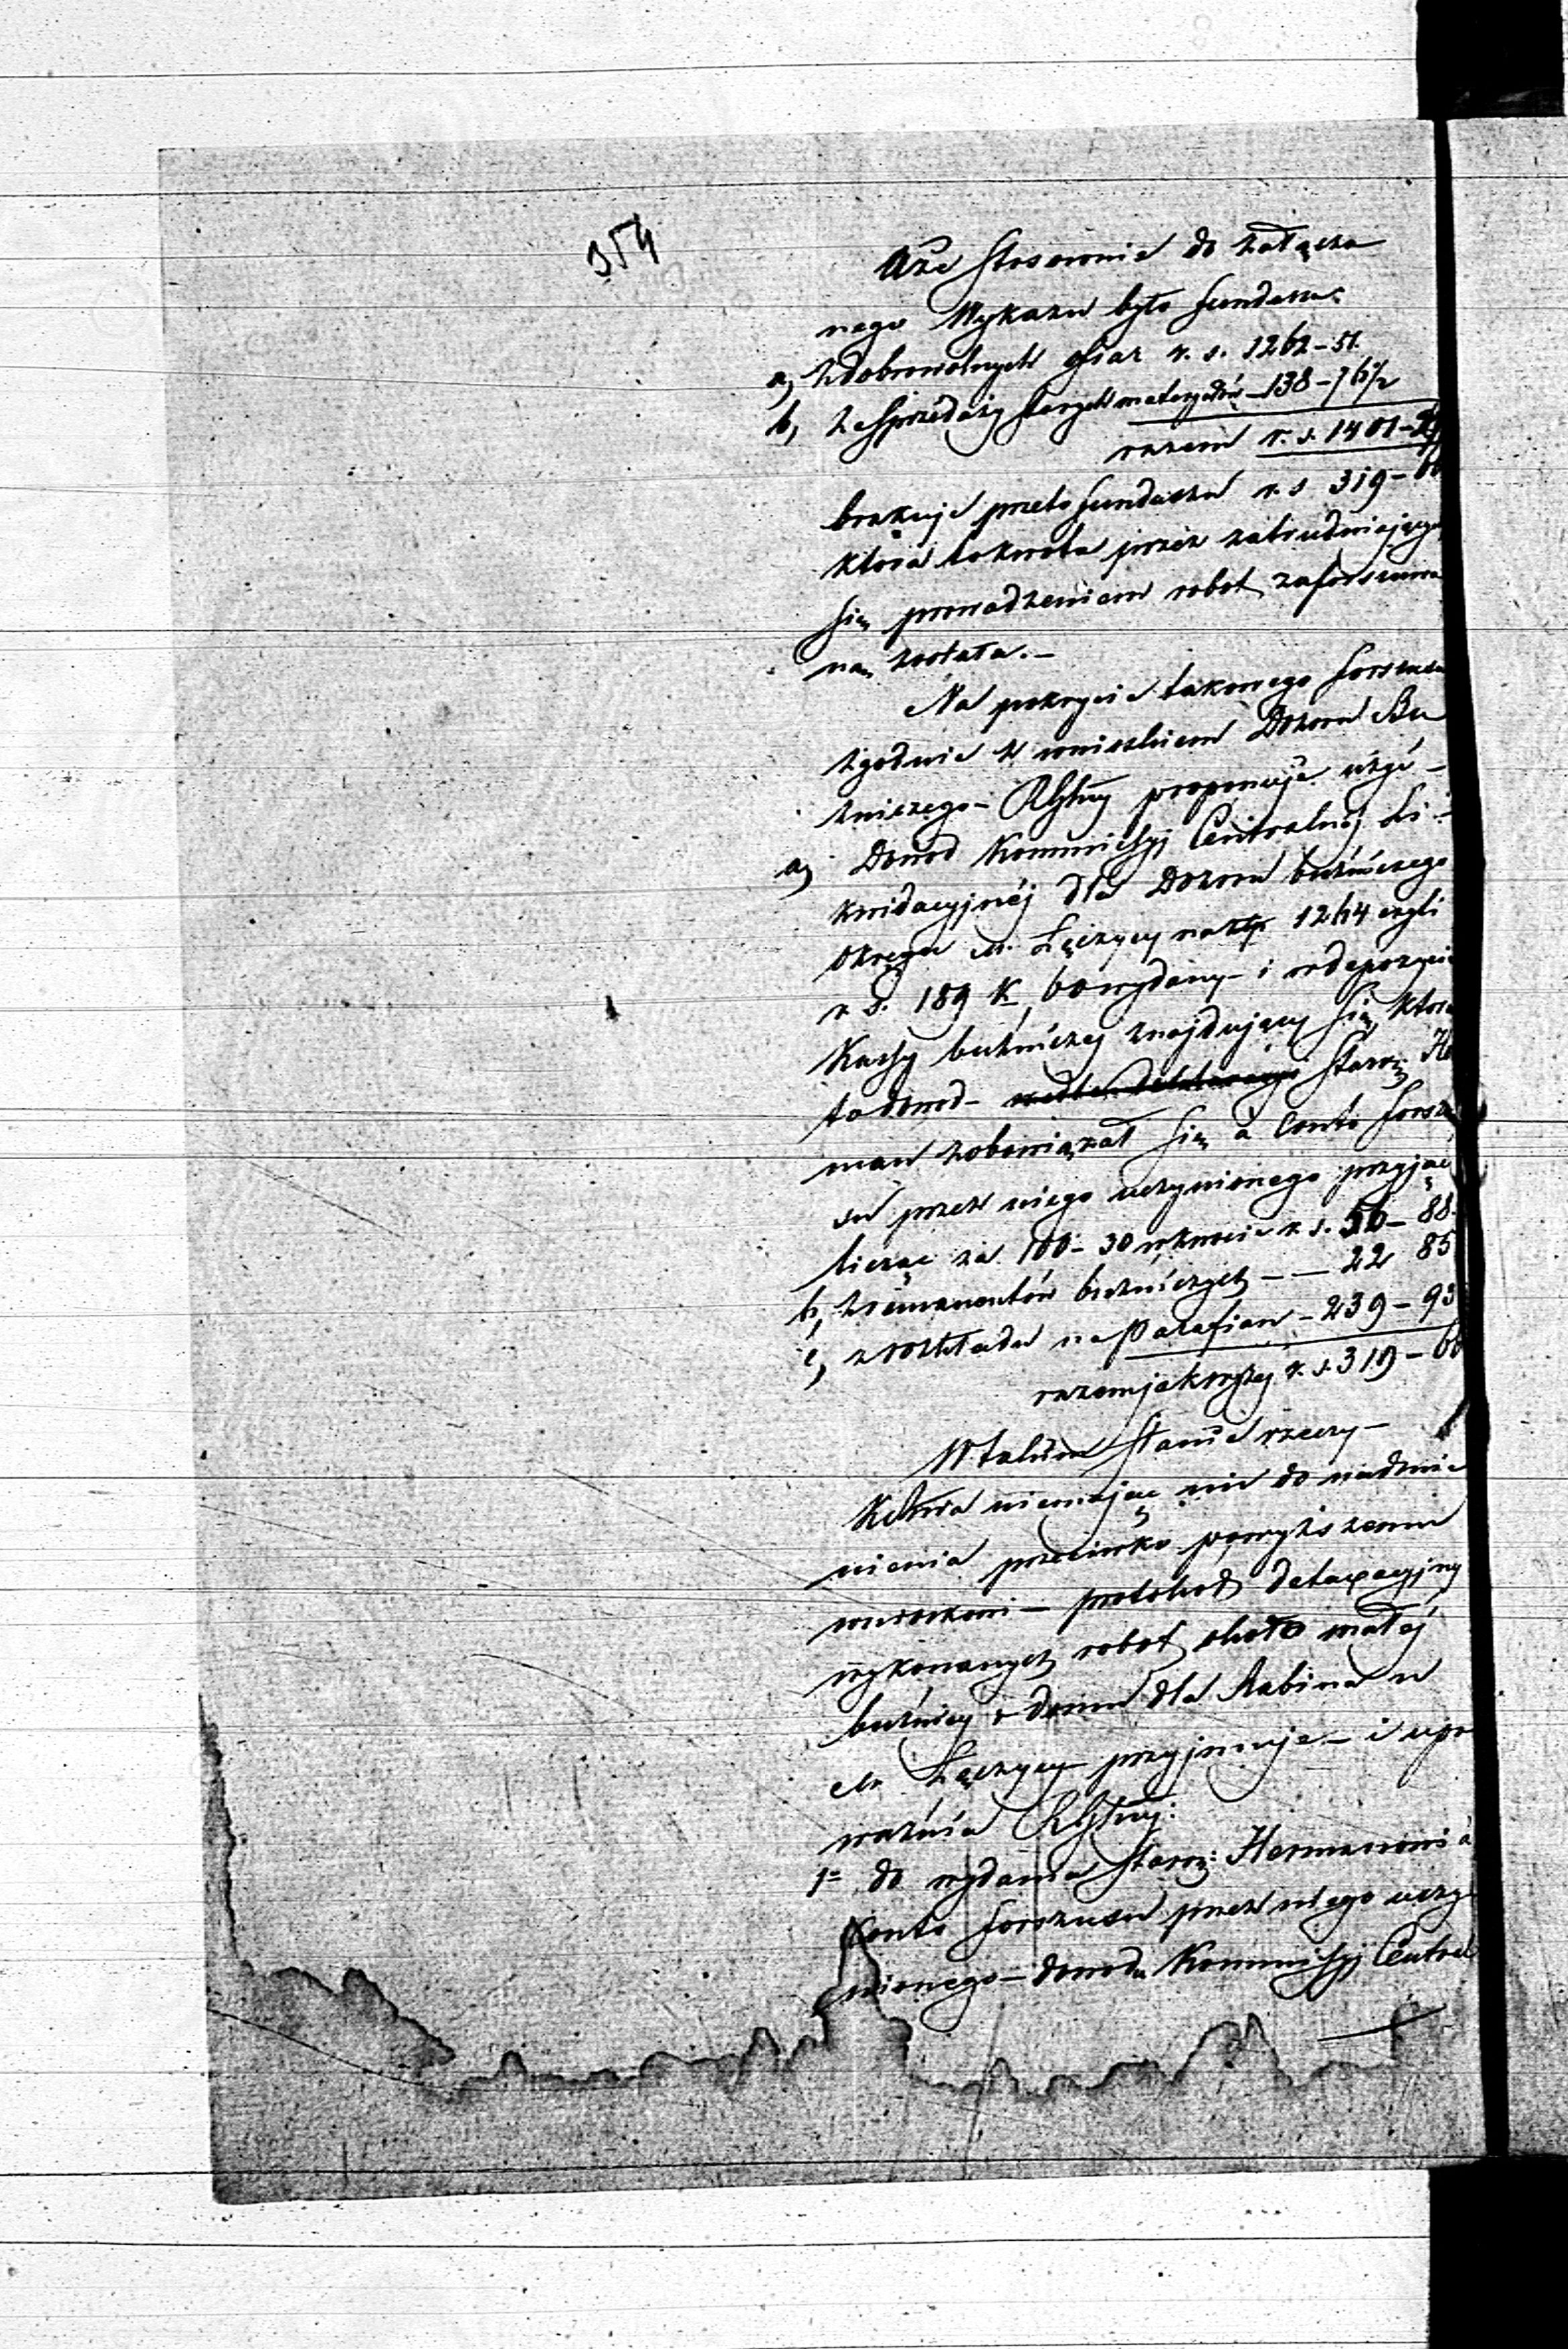 354
Aże stosownie do załącza
nego Wykazu było funduszu:
a, z dobrowolnych ofiar r. s. 1262-51.
b, ze sprzedaży starych materyałów - 138-76½
razem r. s. 1401-2
brakuje przeto funduszu r. s 319-66
która to kwota przez zatrudniającego
się prowadzeniem robot zaforszuwa
ną została.-
Na pokrycie takowego forszusu
zgodnie z wnioskiem Dozoru Bu
żniczego - proponuje użyć -
a, Dowod Kommissyi Centralnej Li-
kwidacyjnéj dla Dozoru bużniczego
Okręgu M. Łęczycy na złp. 1264 czyli
r. s. 189 K. 60 wydany - i w depozycie
Kassy bużniczej znajdujący się, który
to dowod - Staroz: He
man zobowiązał się à Conto forszu
su przez niego uczynionego przyjąć
licząc za 100 - 30 w kwocie r. s. 56 - 88
b, z remanentów bużniczych - — 22 85
c, z rozkładu na Parafian - 239 - 93
razem jak wyżej r. s. 319 - 66
W takim stanie rzeczy -
niemając nic do nadmie
nienia przeciwko powyższemu
wnioskowi - protokół detaxacyjny
wykonanych robot około małéj
bużnicy i domu dla Rabina w
M. Łęczycy przyjmuje - i upo
ważnia
1° do wydania Staroz: Hermanowi à
Conto forszusu przez niego uczy
nionego - dowodu Kommissyi Central